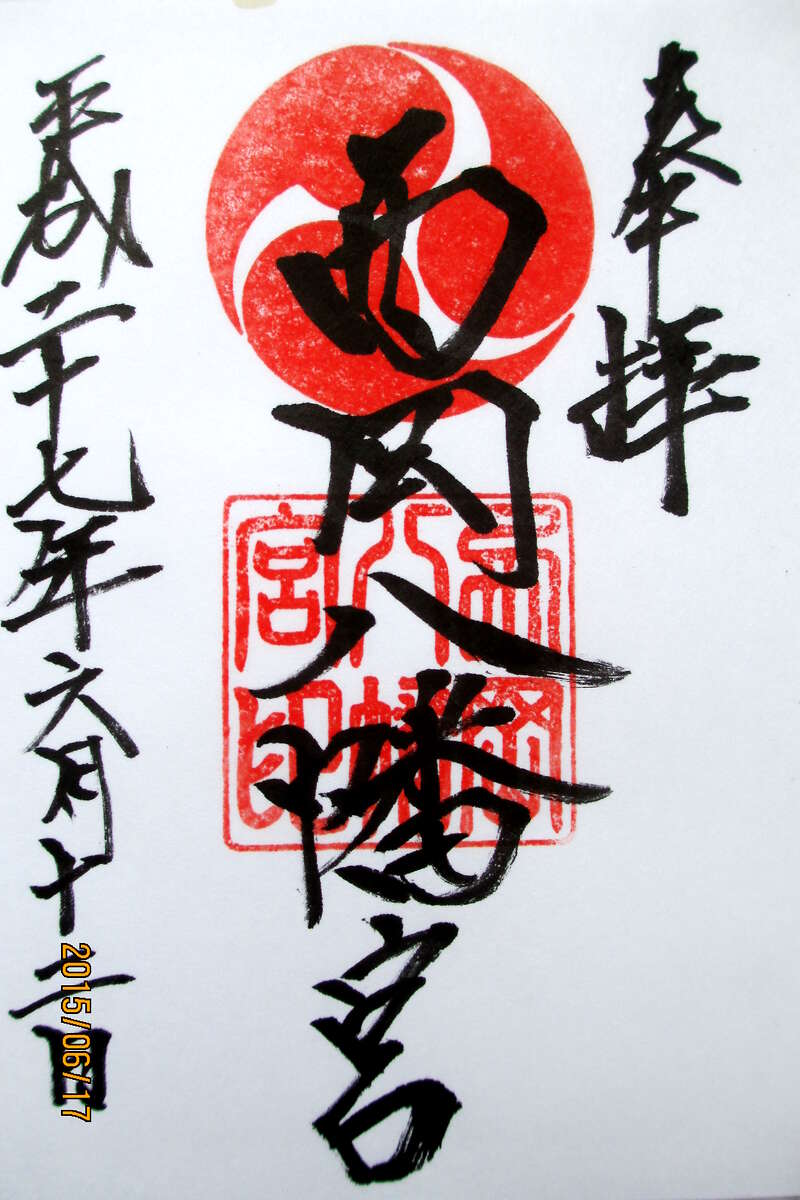 奉拝
西岡八幡宮
西岡
八幡
宮印
平成二十七年六月十二日
2015/06/17